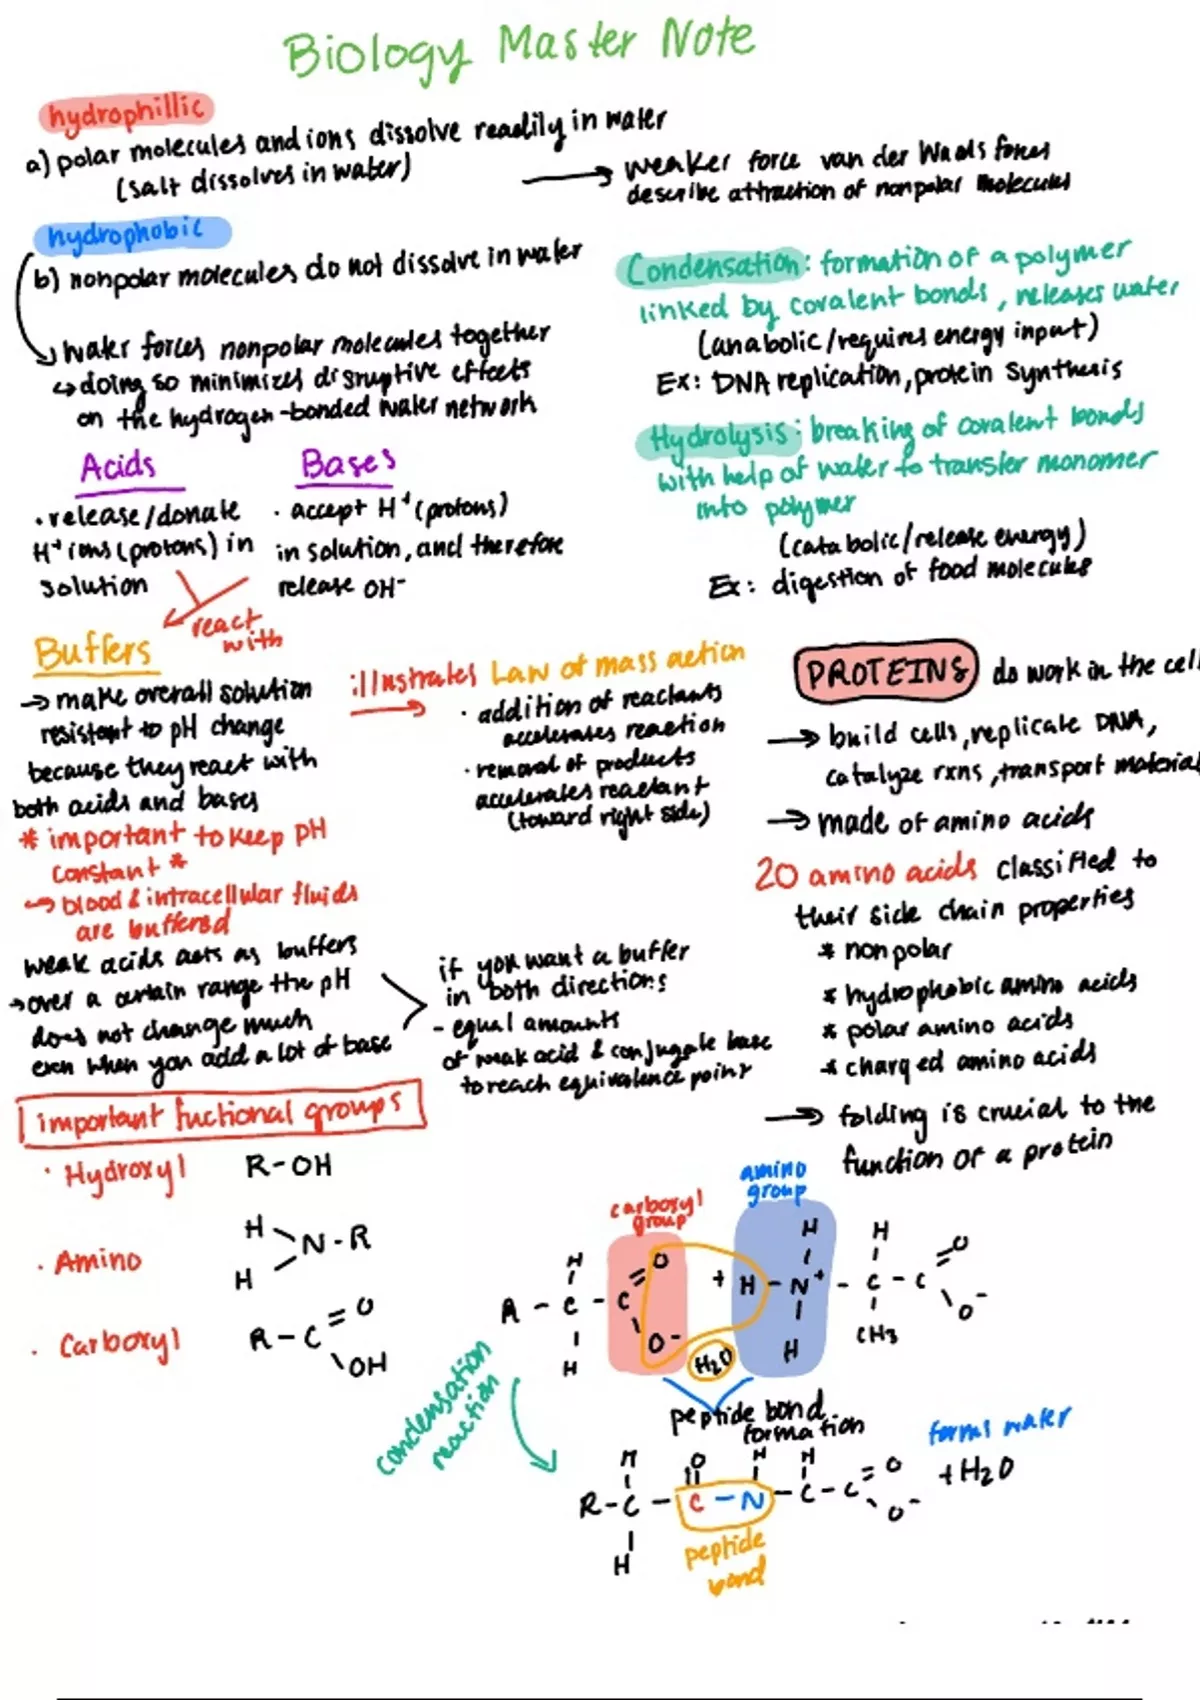 Biology Master Note
hydrophillic
a) polar molecules and ions dissolve readily in water
(salt dissolves in water)
→ weaker force van der Waals forces
describe attraction of nonpolar molecules
hydrophobic
b) nonpolar molecules do not dissolve in water
↳ water forces nonpolar molecules together
↳ doing so minimizes disruptive effects
on the hydrogen-bonded water network
Condensation: formation of a polymer
linked by covalent bonds, releases water
(anabolic/requires energy input)
Ex: DNA replication, protein synthesis
Hydrolysis: breaking of covalent bonds
with help of water to transfer monomer
into polymer
(catabolic/release energy)
Ex: digestion of food molecules
Acids
• release/donate
H+ ions (protons) in
solution
Bases
• accept H+ (protons)
in solution, and therefore
release OH-
react
with
Buffers
→ make overall solution
resistant to pH change
because they react with
both acids and bases
* important to keep pH
constant *
↪ blood & intracellular fluids
are buffered
weak acids acts as buffers
→ over a certain range the pH
does not change much
even when you add a lot of base
illustrates Law of mass action
• addition of reactants
accelerates reaction
• removal of products
accelerates reactant
(toward right side)
if you want a buffer
in both directions
- equal amounts
of weak acid & conjugate base
to reach equivalence point
PROTEINS do work in the cell
→ build cells, replicate DNA,
catalyze rxns, transport material
→ made of amino acids
20 amino acids classified to
their side chain properties
* nonpolar
* hydrophobic amino acids
* polar amino acids
* charged amino acids
→ folding is crucial to the
function of a protein
important fuctional groups
• Hydroxyl R-OH
• Amino
H
N-R
H
• Carboxyl
O
R-C
OH
carboxyl
group
amino
group
H H H
O O
R - C - C + H - N+ - C - C
O- O-
H H CH3
H2O
condensation
reaction
peptide bond
formation
forms water
H O H H
R-C-C-N-C-C O + H2O
O-
H
peptide
bond